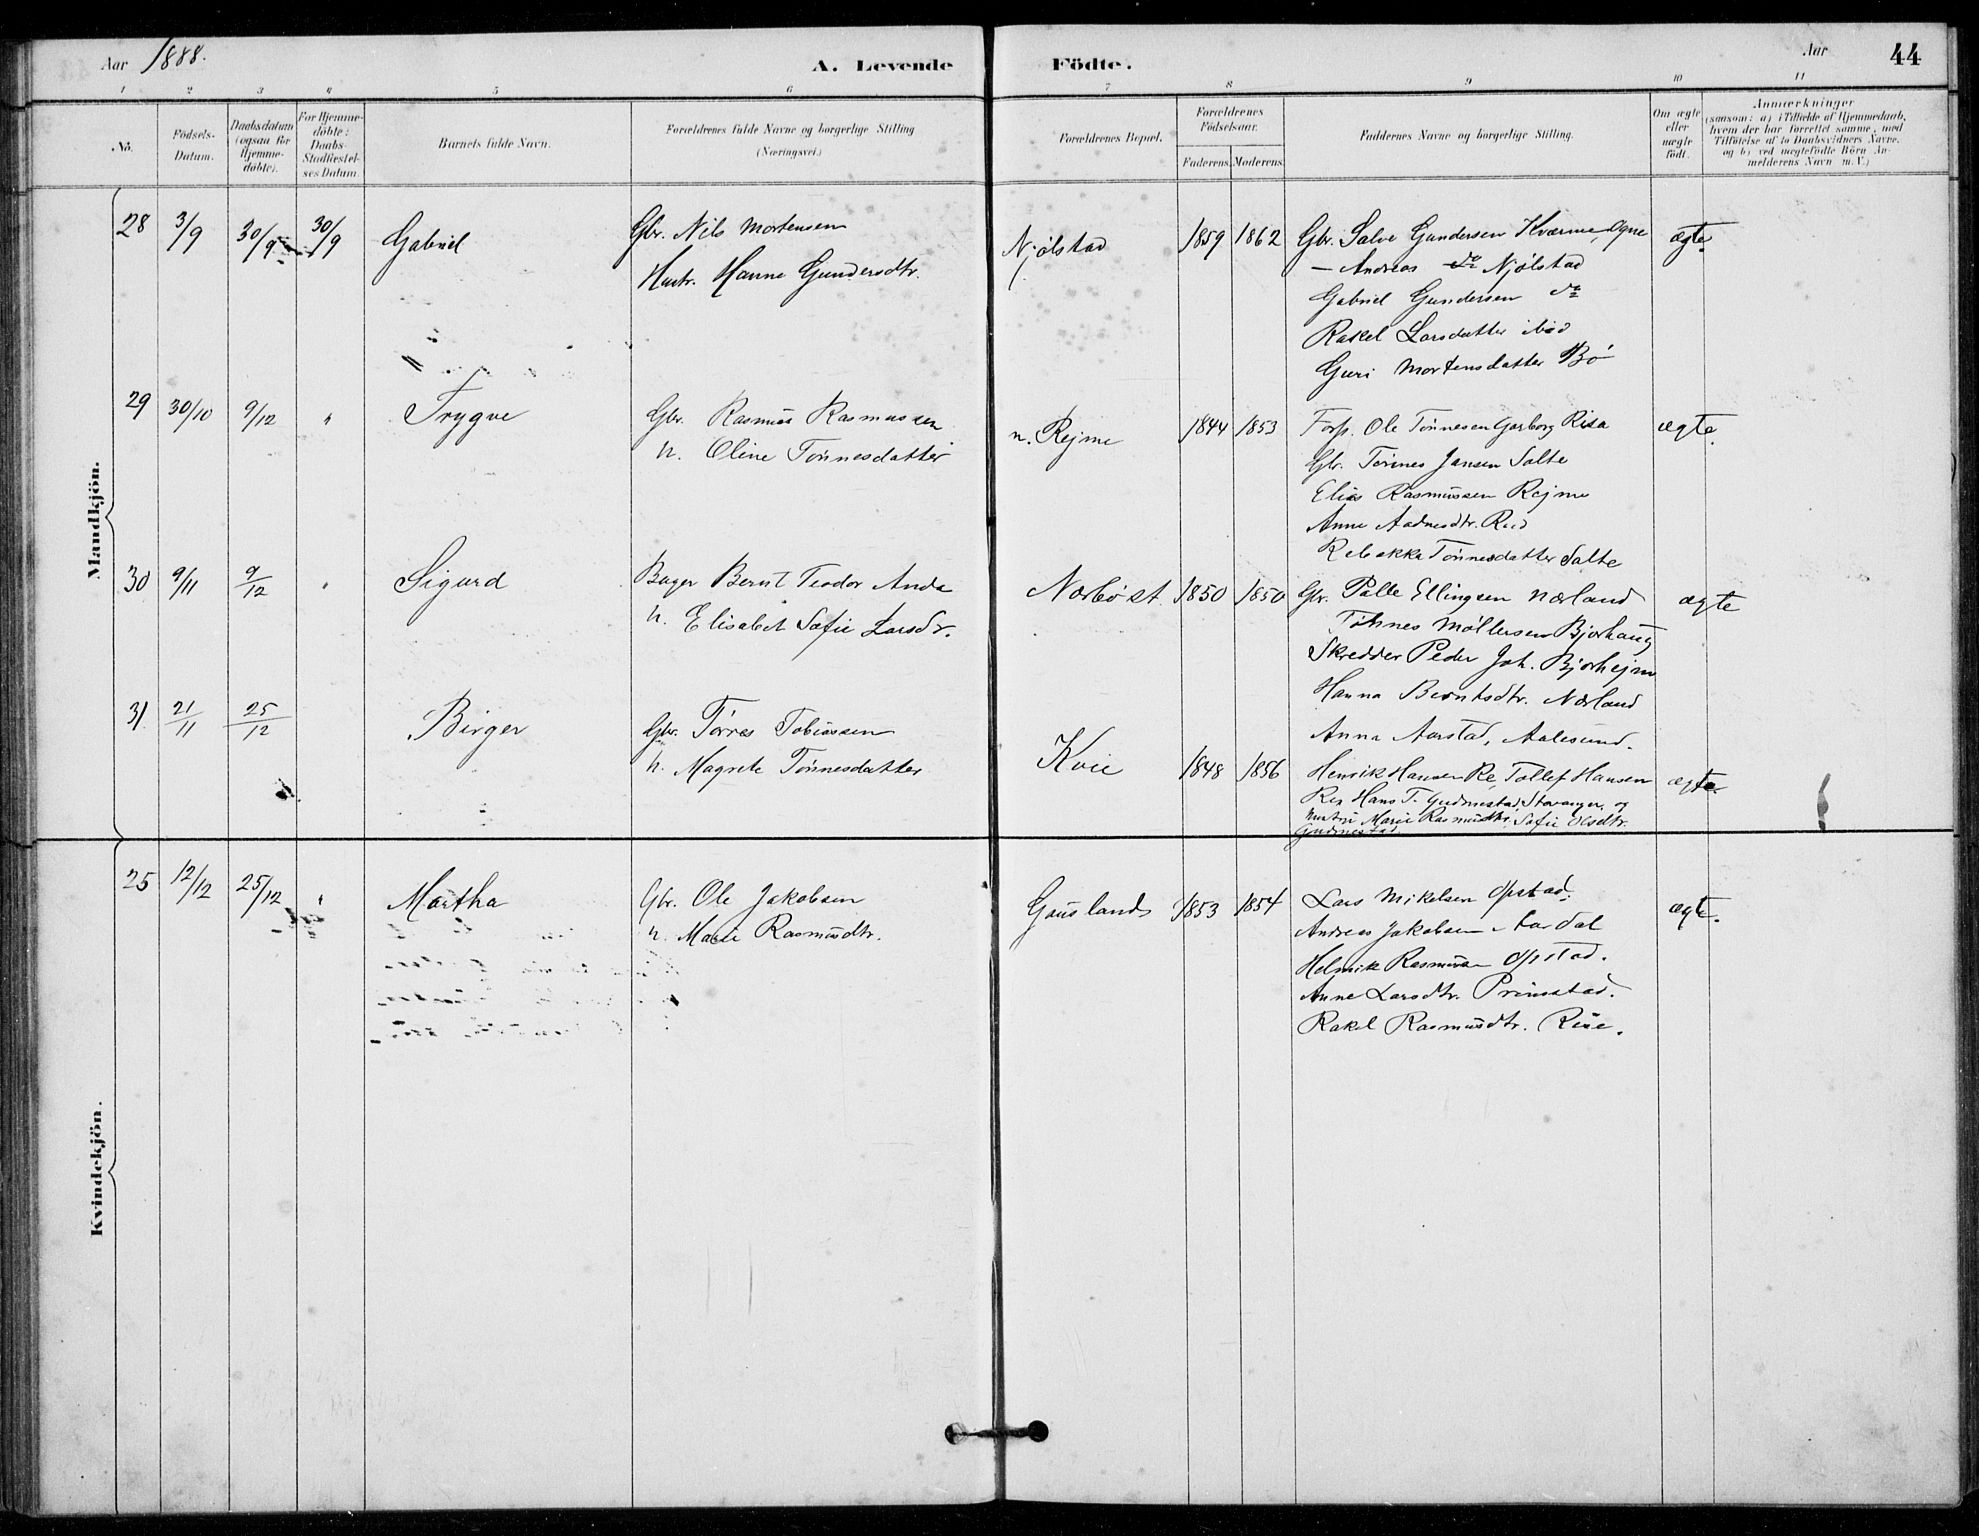 Aar 1888.
A. Levende Födte.
Aar
44
1 2 3 4 5 6 7 8 9 10 11
No.
Födsels-
Datum.
Daabsdatum
(ogsaa for
Hjemme-
döbte).
For Hjemme-
döbte:
Daabs-
Stadfæstel-
ses Datum.
Barnets fulde Navn.
Forældrenes fulde Navne og borgerlige Stilling
(Næringsvei.)
Forældrenes Bopæl.
Forældrenes
Födselsaar.
Faderens. Moderens.
Faddernes Navne og borgerlige Stilling.
Om ægte
eller
uægte
födt.
Anmærkninger
(saasom: a) i Tilfælde af Hjemmedaab,
hvem der har forrettet samme, med
Tilföielse af to Daabsvidners Navne.
og b) ved uægtefödte Börn An-
melderens Navn m. V.)
Mandkjön.
28 3/9 30/9 30/9 Gabriel
Gbr. Nils Mortensen
Hustr. Hanne Gundersdtr.
Njølstad 1859 1862
Gbr. Salve Gundersen Kværme, Ogne
— Andreas do Njølstad
Gabriel Gundersen do
Rakel Larsdatter ibid
Guri Mortensdatter Bø
ægte.
29 30/10 9/12 " Trygve
Gbr. Rasmus Rasmussen
H. Oline Tønnesdatter
n. Rejme 1844 1853
Forp. Ole Tønnesen Garborg Risa
Gbr. Tønnes Jansen Salte
Elias Rasmussen Rejme
Anne Aadnesdtr. Reid
Rebekka Tønnesdatter Salte
ægte.
30 9/11 9/12 " Sigurd
Bager Bernt Teodor Anda
H. Elisabet Sofie Larsdr.
Nærbø st. 1850 1850
Gbr. Palle Ellingsen Nærland
Tønnes Møllersen Bjorhaug
Skredder Peder Joh. Bjorhejm
Hanna Berntsdtr. Nærland
Anna Aarstad, Aalesund.
ægte
31 21/11 25/12 Birger
Gbr. Tørres Tobiassen
H. Magrete Tønnesdatter
Kvie 1848 1856
Henrik Hansen Re, Tollef Hansen
Re, Hans T. Gudmestad, Stavanger, og
Hustru Marie Rasmusdtr. Sofie Olsdtr.
Gudmestad
ægte.
Kvindekjön.
25 12/12 25/12 " Martha
Gbr. Ole Jakobsen
H. Marie Rasmusdtr.
Gauslands 1853 1854
Lars Mikelsen Opstad.
Andreas Jakobsen
Rasmussen Opstad.
Anne Larsdtr. Primstad.
Rakel Rasmusdtr. Risa.
ægte.